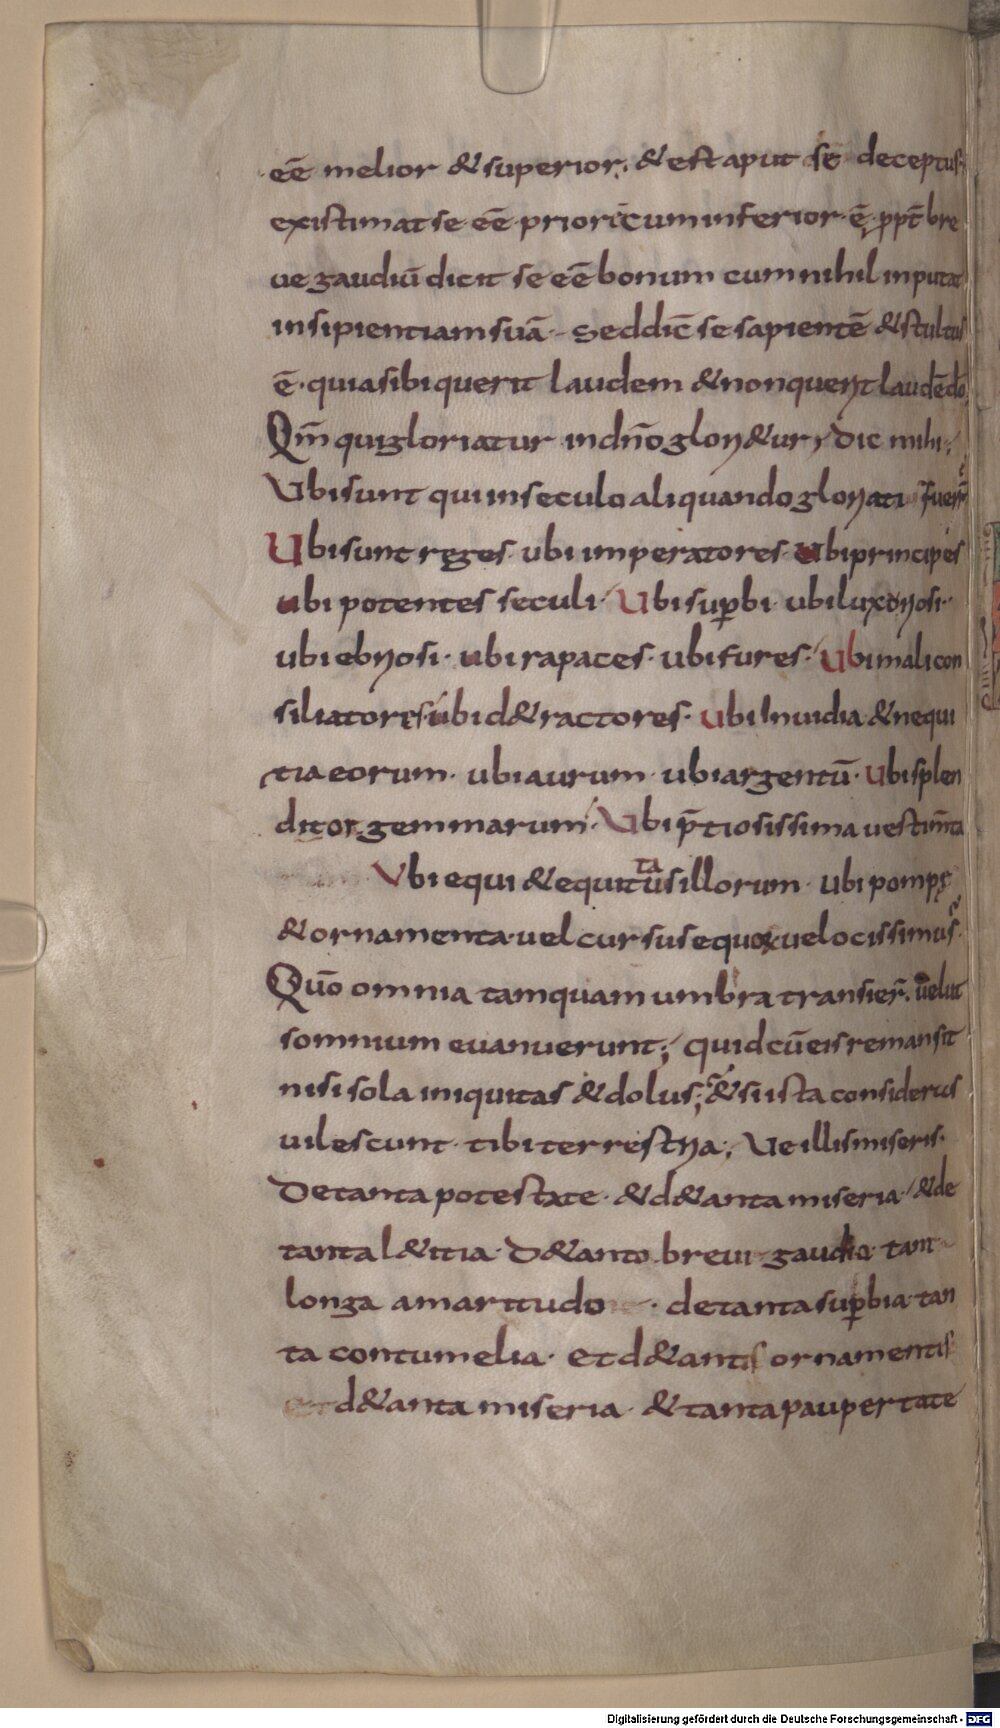 eē melior & superior. & est aput sē deceptus.
existimat se eē priorē cum inferior ē. ppt̄ bre
ue gaudiū dicit se eē bonum cum nihil inputat
insipientiam suā. sed dic̄ se sapientē & stultus
ē. quia sibi querit laudem & non querit laudē dō
Qm̄ qui gloriatur in dn̄o glori&ur, Dic mihi;
Ubi sunt qui in seculo aliquando gloriati fuer̄
Ubi sunt reges. ubi imperatores. ubi principes
ubi potentes seculi. Ubi sup̄bi. ubi luxoriosi.
ubi ebriosi. ubi rapaces. ubi fures. Ubi mali con
siliatores ubi d&ractores. ubi Inuidia & nequi
tia eorum. ubi aurum. ubi argentū. Ubi splen
ditor gemmarum. Ubi p̄tiosissima uestim̄ta
Ubi equi & equitatus illorum. ubi pompę
& ornamenta. uel cursus equox uelocissimus.
Quō omnia tamquam umbra transier̄. uelut
somnium euanuerunt; quid cū eis remansit
nisi sola iniquitas & dolus; & si ista considerus
uilescunt tibi terrestria; Ue illis miseris.
De tanta potestate. & d&anta miseria. & de
tanta l&itia. D&anto breui gaudio tam
longa amaritudo. de tanta sup̄bia tan
ta contumelia. et d&antis ornamentis
et d&anta miseria. & tanta paupertate
Digitalisierung gefördert durch die Deutsche Forschungsgemeinschaft - DFG